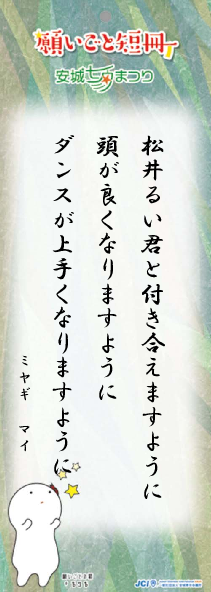 願いごと短冊
安城七夕まつり
松井るい君と付き合えますように
頭が良くなりますように
ダンスが上手くなりますように
ミヤギ マイ
JCI